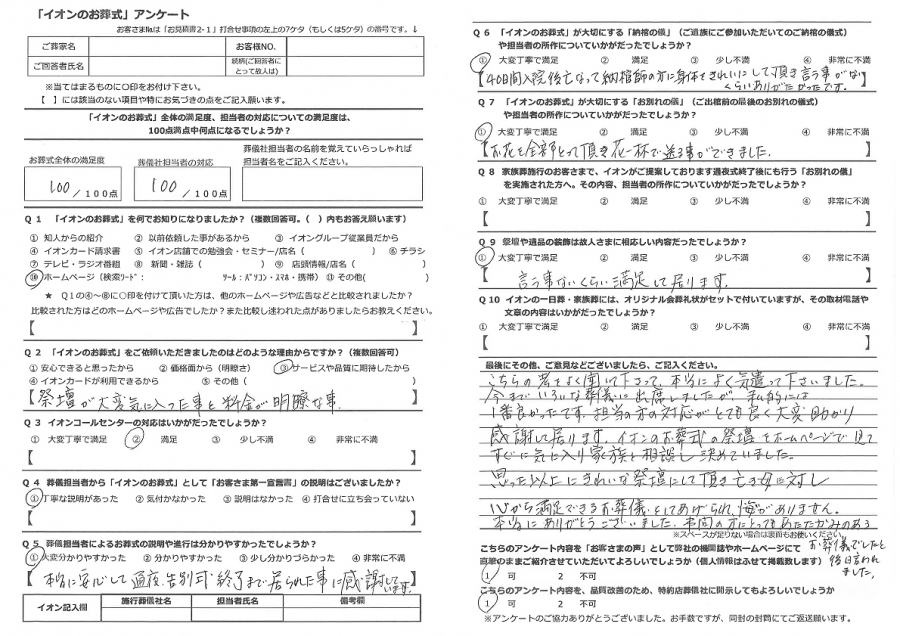 「イオンのお葬式」アンケート
お客さま№は「お見積書2-1」打合せ事項の左上の7ケタ（もしくは5ケタ）の番号です。↓
ご葬家名 お客様NO.
ご回答者氏名 続柄(ご回答者にとって故人は)
※当てはまるものに○印をお付け下さい。
【 】には該当のない項目や特にお気づきの点をご記入願います。
「イオンのお葬式」全体の満足度、担当者の対応についての満足度は、
100点満点中何点になるでしょうか？
お葬式全体の満足度 葬儀社担当者の対応 葬儀社担当者の名前を覚えていらっしゃれば
担当者名をご記入ください。
100 /100点 100 /100点
Q1 「イオンのお葬式」を何でお知りになりましたか？（複数回答可。（ ）内もお答え願います）
① 知人からの紹介 ② 以前依頼した事があるから ③ イオングループ従業員だから
④ イオンカード請求書 ⑤ イオン店舗での勉強会・セミナー/店名（ ） ⑥ チラシ
⑦ テレビ・ラジオ番組 ⑧ 新聞・雑誌（ ） ⑨ 店頭情報/店名（ ）
⑩ ホームページ（検索ワード： ツール：パソコン・スマホ・携帯）⑪ その他( )
★ Q1の④～⑧に○印を付けて頂いた方は、他のホームページや広告などと比較されましたか？
比較された方はどのホームページや広告でしたか？また比較し迷われた点がありましたらお教えください。
【 】
Q2 「イオンのお葬式」をご依頼いただきましたのはどのような理由からですか？（複数回答可）
① 安心できると思ったから ② 価格面から（明瞭さ） ③ サービスや品質に期待したから
④ イオンカードが利用できるから ⑤ その他（ ）
【祭壇が大変気に入った事と料金が明瞭な事。】
Q3 イオンコールセンターの対応はいかがだったでしょうか？
① 大変丁寧で満足 ② 満足 ③ 少し不満 ④ 非常に不満
【 】
Q4 葬儀担当者から「イオンのお葬式」として「お客さま第一宣言書」の説明はございましたか？
① 丁寧な説明があった ② 気付かなかった ③ 説明はなかった ④ 打合せに立ち会っていない
【 】
Q5 葬儀担当者によるお葬式の説明や進行は分かりやすかったでしょうか？
① 大変分かりやすかった ② 分かりやすかった ③ 少し分かりづらかった ④ 非常に不満
【本当に安心して通夜、告別式終了まで居られた事に感謝しています。】
イオン記入欄 施行葬儀社名 担当者氏名 備考欄
Q6 「イオンのお葬式」が大切にする「納棺の儀」（ご遺族にご参加いただいてのご納棺の儀式）
や担当者の所作についていかがだったでしょうか？
① 大変丁寧で満足 ② 満足 ③ 少し不満 ④ 非常に不満
【40日間入院後亡なって納棺師の方に身体をきれいにして頂き言う事がない
くらいありがたかったです。】
Q7 「イオンのお葬式」が大切にする「お別れの儀」（ご出棺前の最後のお別れの儀式）
や担当者の所作についていかがだったでしょうか？
① 大変丁寧で満足 ② 満足 ③ 少し不満 ④ 非常に不満
【お花を全部とって頂き花一杯で送る事ができました。】
Q8 家族葬施行のお客さまで、イオンがご提案しております通夜式終了後にも行う「お別れの儀」
を実施された方へ。その内容、担当者の所作についていかがだったでしょうか？
① 大変丁寧で満足 ② 満足 ③ 少し不満 ④ 非常に不満
【 】
Q9 祭壇や遺品の装飾は故人さまに相応しい内容だったでしょうか？
① 大変丁寧で満足 ② 満足 ③ 少し不満 ④ 非常に不満
【言う事ないくらい満足して居ります。】
Q10 イオンの一日葬・家族葬には、オリジナル会葬礼状がセットで付いていますが、その取材電話や
文章の内容はいかがだったでしょうか？
① 大変丁寧で満足 ② 満足 ③ 少し不満 ④ 非常に不満
【 】
最後にその他、ご意見などございましたら、ご記入ください。
こちらの話をよく聞いて下さって、本当によく気遣って下さいました。
今までいろいろな葬儀に出席しましたが、私的には
1番良かったです。担当の方の対応がとても良く大変助かり
感謝して居ります。イオンのお葬式の祭壇をホームページで見て
すぐに気に入り家族と相談し決めていました。
思った以上にきれいな祭壇にして頂き亡き母に対し
心から満足できるお葬儀をしてあげられ、悔いがありません。
本当にありがとうございました。弔問の方にとてもあたたかみのある
お葬儀でしたと
後日言われ
ました。
※スペースが足りない場合は裏面もお使いください。
こちらのアンケート内容を「お客さまの声」として弊社の機関誌やホームページにて
直筆のままご紹介させていただいてよろしいでしょうか（個人情報はふせて掲載致します）
1 可 2 不可
こちらのアンケート内容を、品質改善のため、特約店葬儀社に開示してもよろしいでしょうか
1 可 2 不可
※アンケートのご協力ありがとうございました。お手数ですが、同封の封筒にてご返送願います。